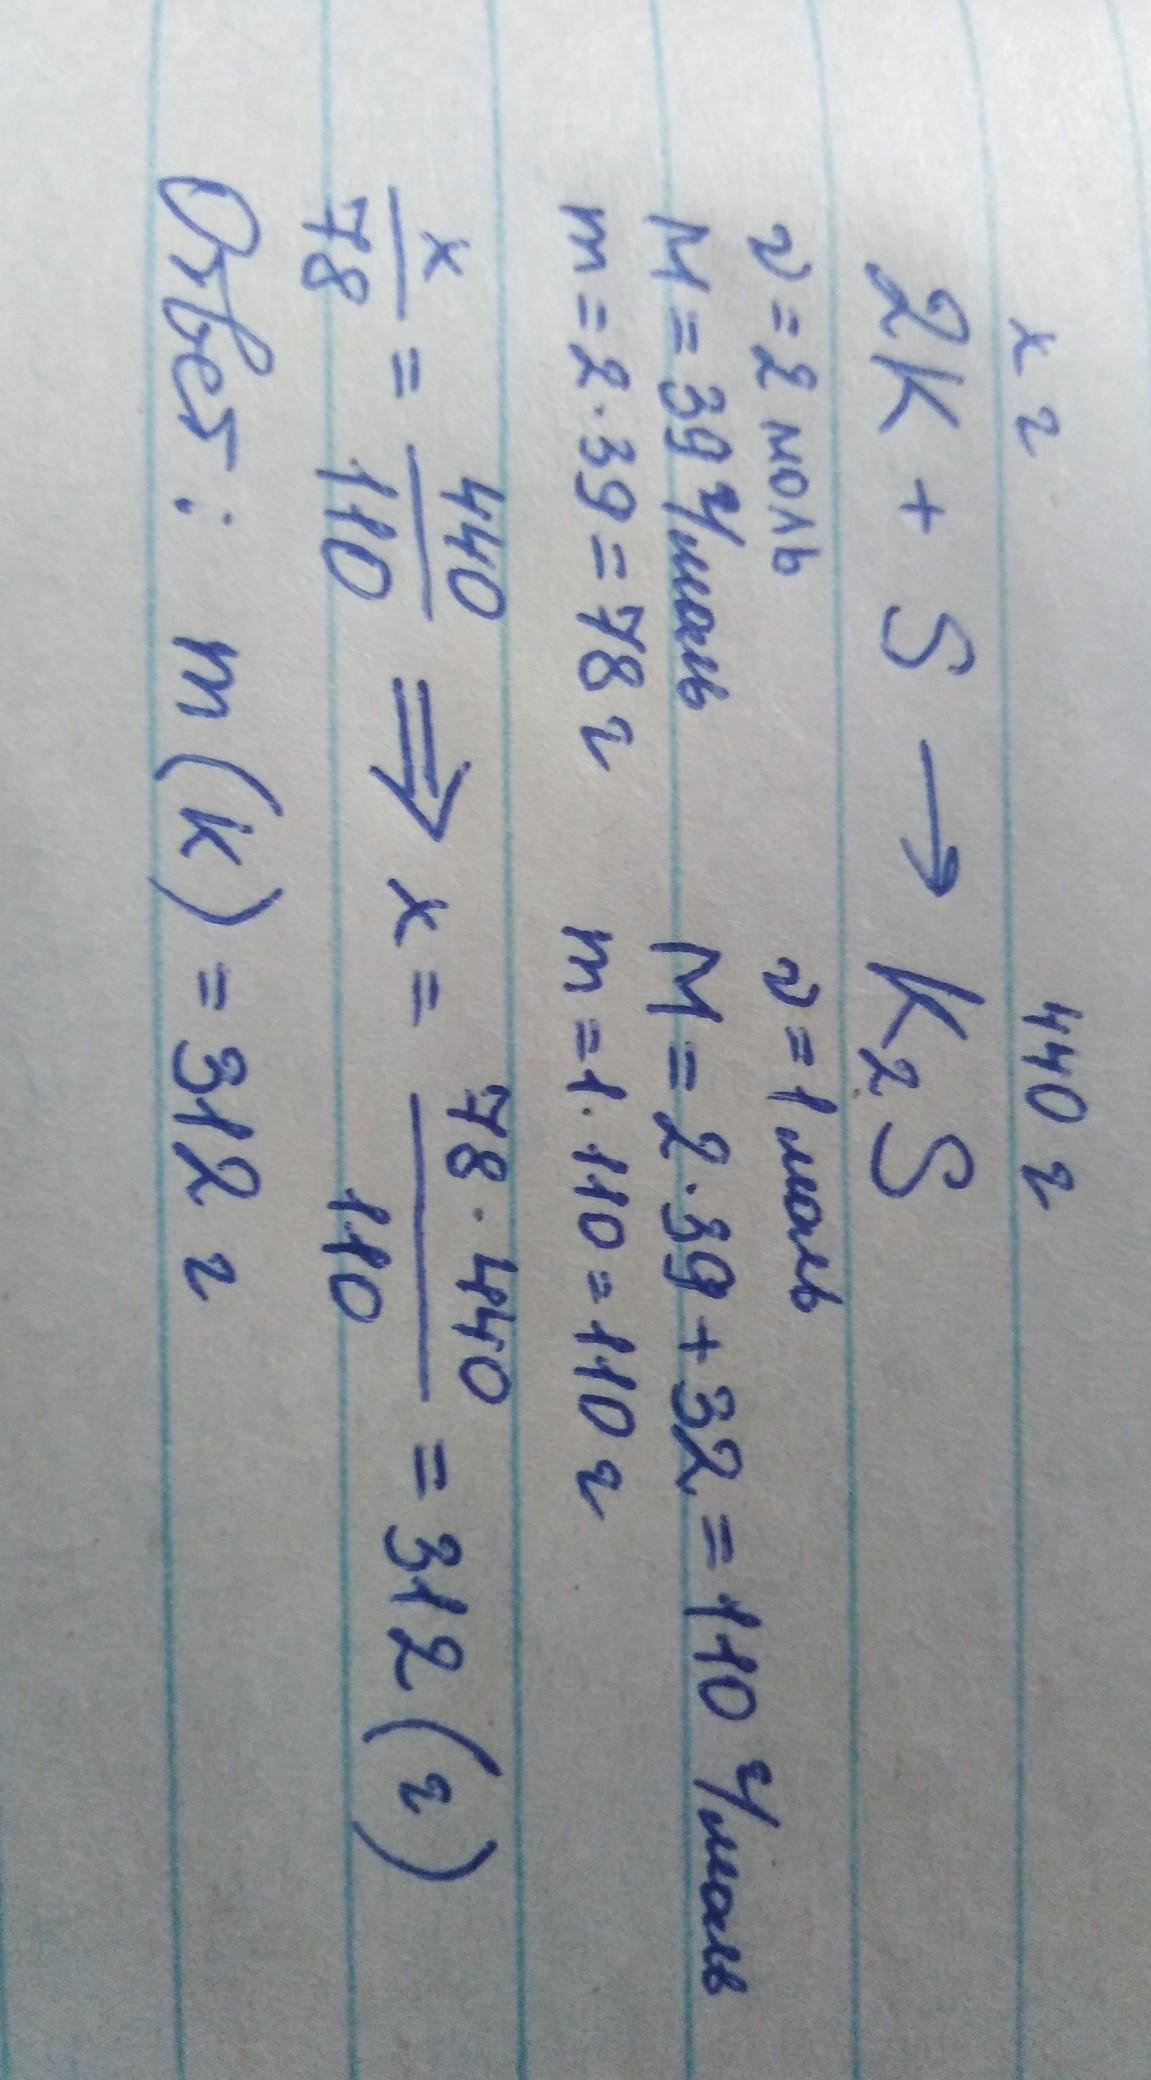 x г 440 г
2K + S → K₂S
ν = 2 моль ν = 1 моль
M = 39 г/моль M = 2·39 + 32 = 110 г/моль
m = 2·39 = 78 г m = 1·110 = 110 г
x/78 = 440/110 ⇒ x = 78·440/110 = 312 (г)
Ответ: m(k) = 312 г